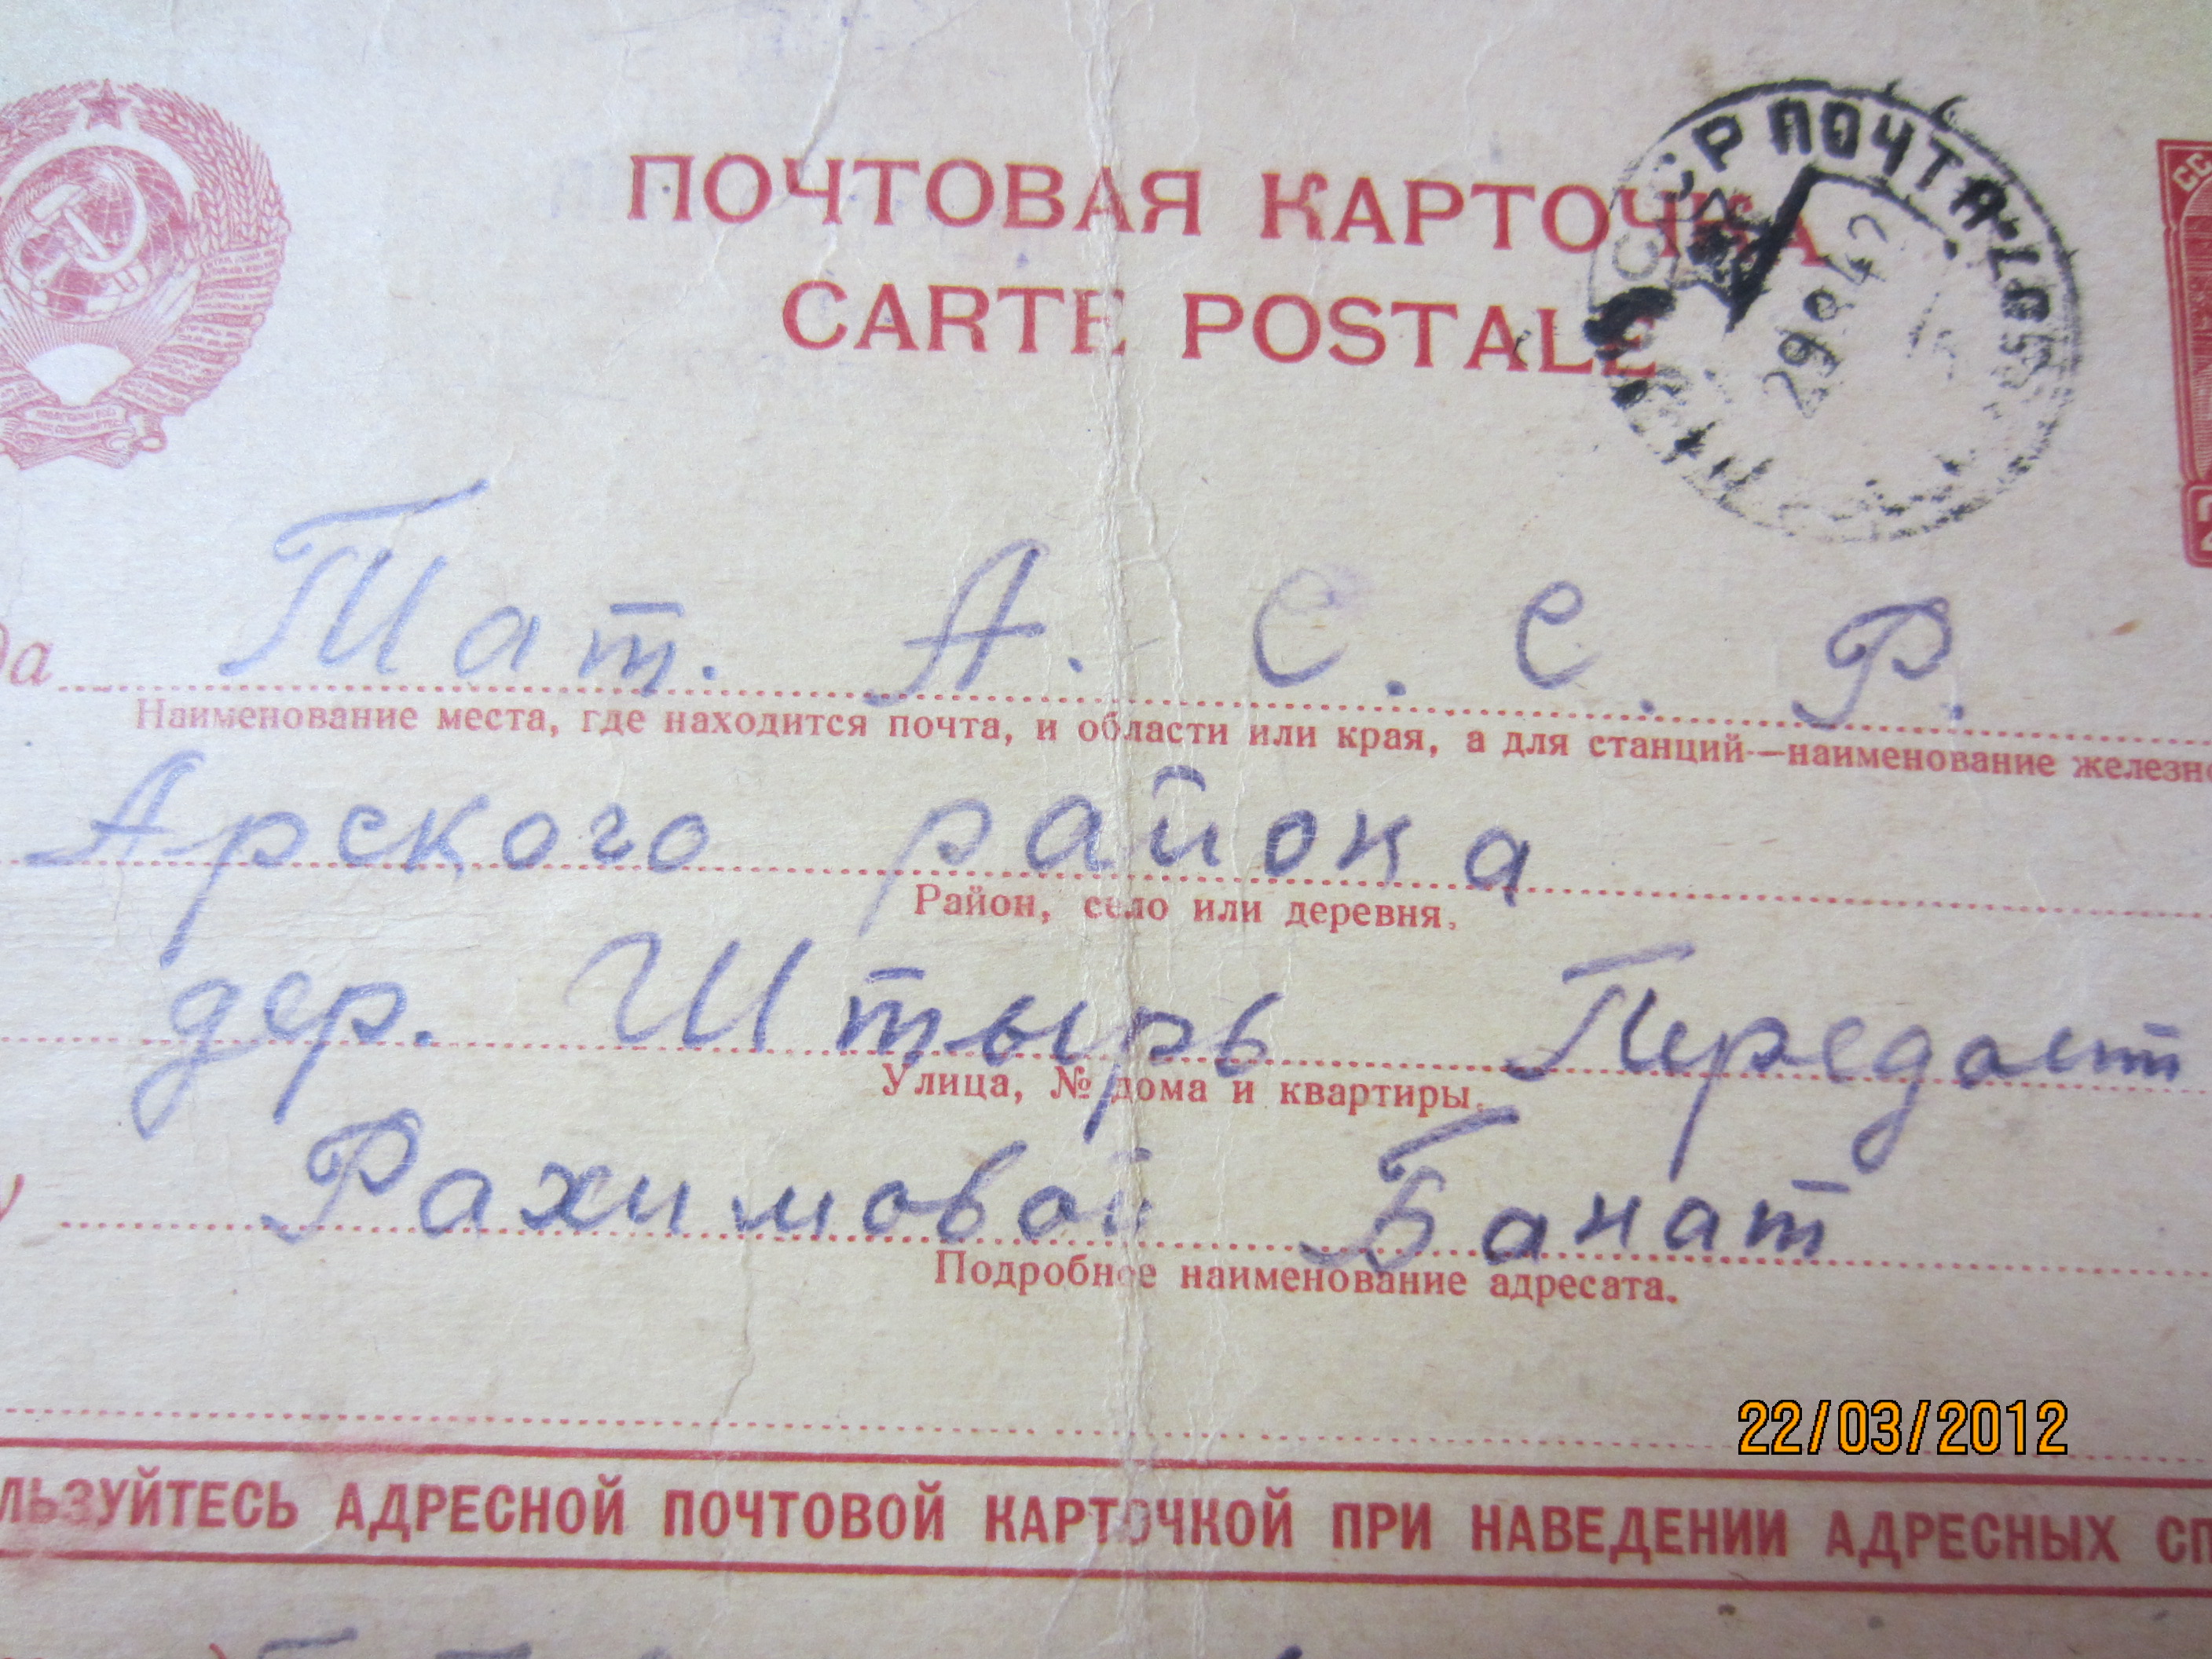 ПОЧТОВАЯ КАРТОЧКА
CARTE POSTALE
СССР ПОЧТА
29 9 42
да Тат. А. С. С. Р.
Наименование места, где находится почта, и области или края, а для станций—наименование железно
Арского района
Район, село или деревня.
дер. Штырь Передаст
Улица, № дома и квартиры.
у Рахимовой Банат
Подробное наименование адресата.
22/03/2012
ЛЬЗУЙТЕСЬ АДРЕСНОЙ ПОЧТОВОЙ КАРТОЧКОЙ ПРИ НАВЕДЕНИИ АДРЕСНЫХ СП